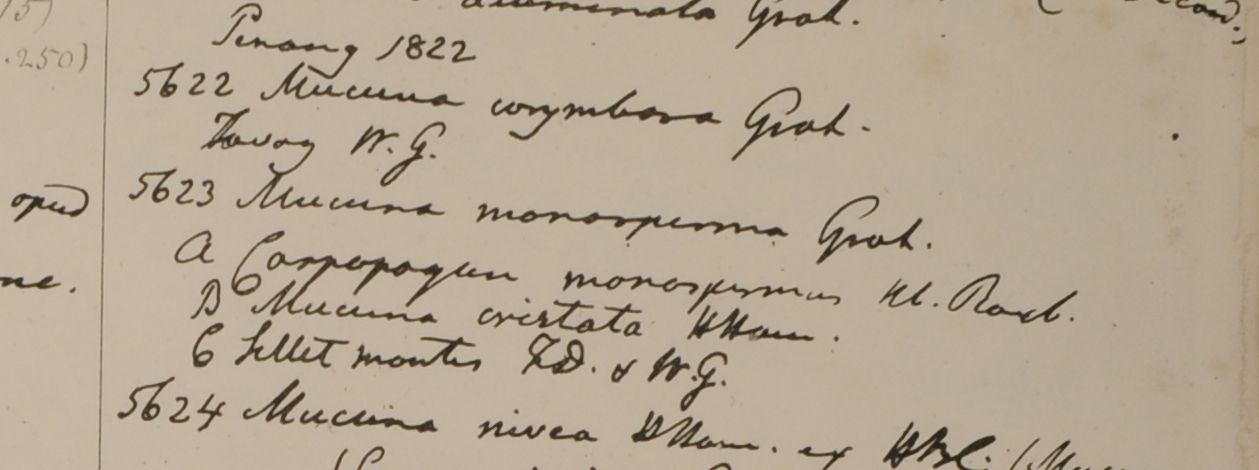 15)
acuminata Grah.
.250)
Penang 1822
5622 Mucuna corymbosa Grah.
Tavoy W.G.
apud
5623 Mucuna monosperma Grah.
A Carpopogon monospermus Hb. Roxb.
ne.
B Mucuna cristata HHam.
C Sillet montes F.D. & W.G.
5624 Mucuna nivea HHam. ex